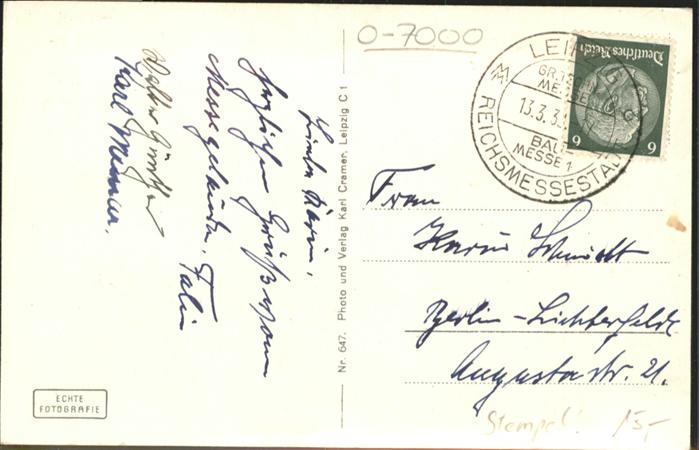 O-7000
Liebe Karin,
herzlichen Gruß vom
Messegelände.
Karl
Nr. 647. Photo und Verlag Karl Cramer, Leipzig C 1
ECHTE
FOTOGRAFIE
LEIPZIG C
GR. TECHN.
MESSE
13.3.3
BAU
MESSE 1
REICHSMESSESTADT
Deutsches Reich
6 6
Frau
Karin Schmidt
Berlin-Lichterfelde
Augustastr. 21.
Stempel! 15,-